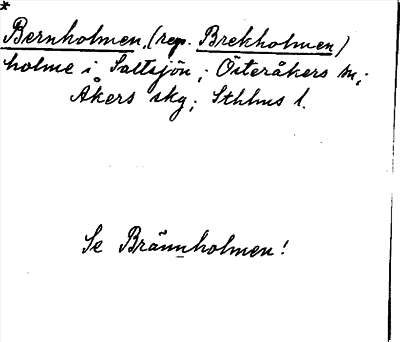 *
Bernholmen, (rep. Brekholmen)
holme i Saltsjön; Österåkers sn;
Åkers skg; Sthlms l.
Se Brännholmen!